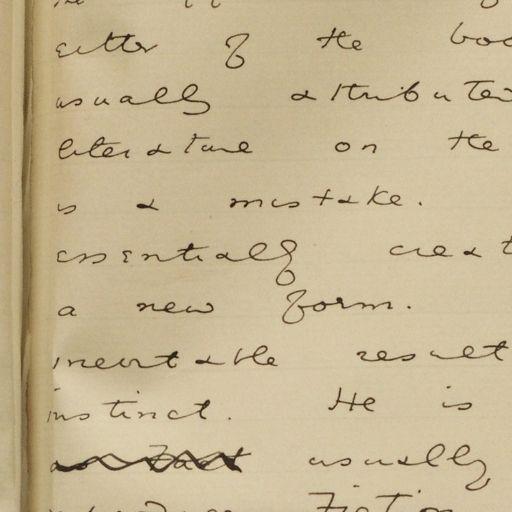 either of the boo
usually attributed
literature on the
is a mistake.
essentially creat
a new form.
inevitable result
instinct. He is
as Fact usually
Fiction